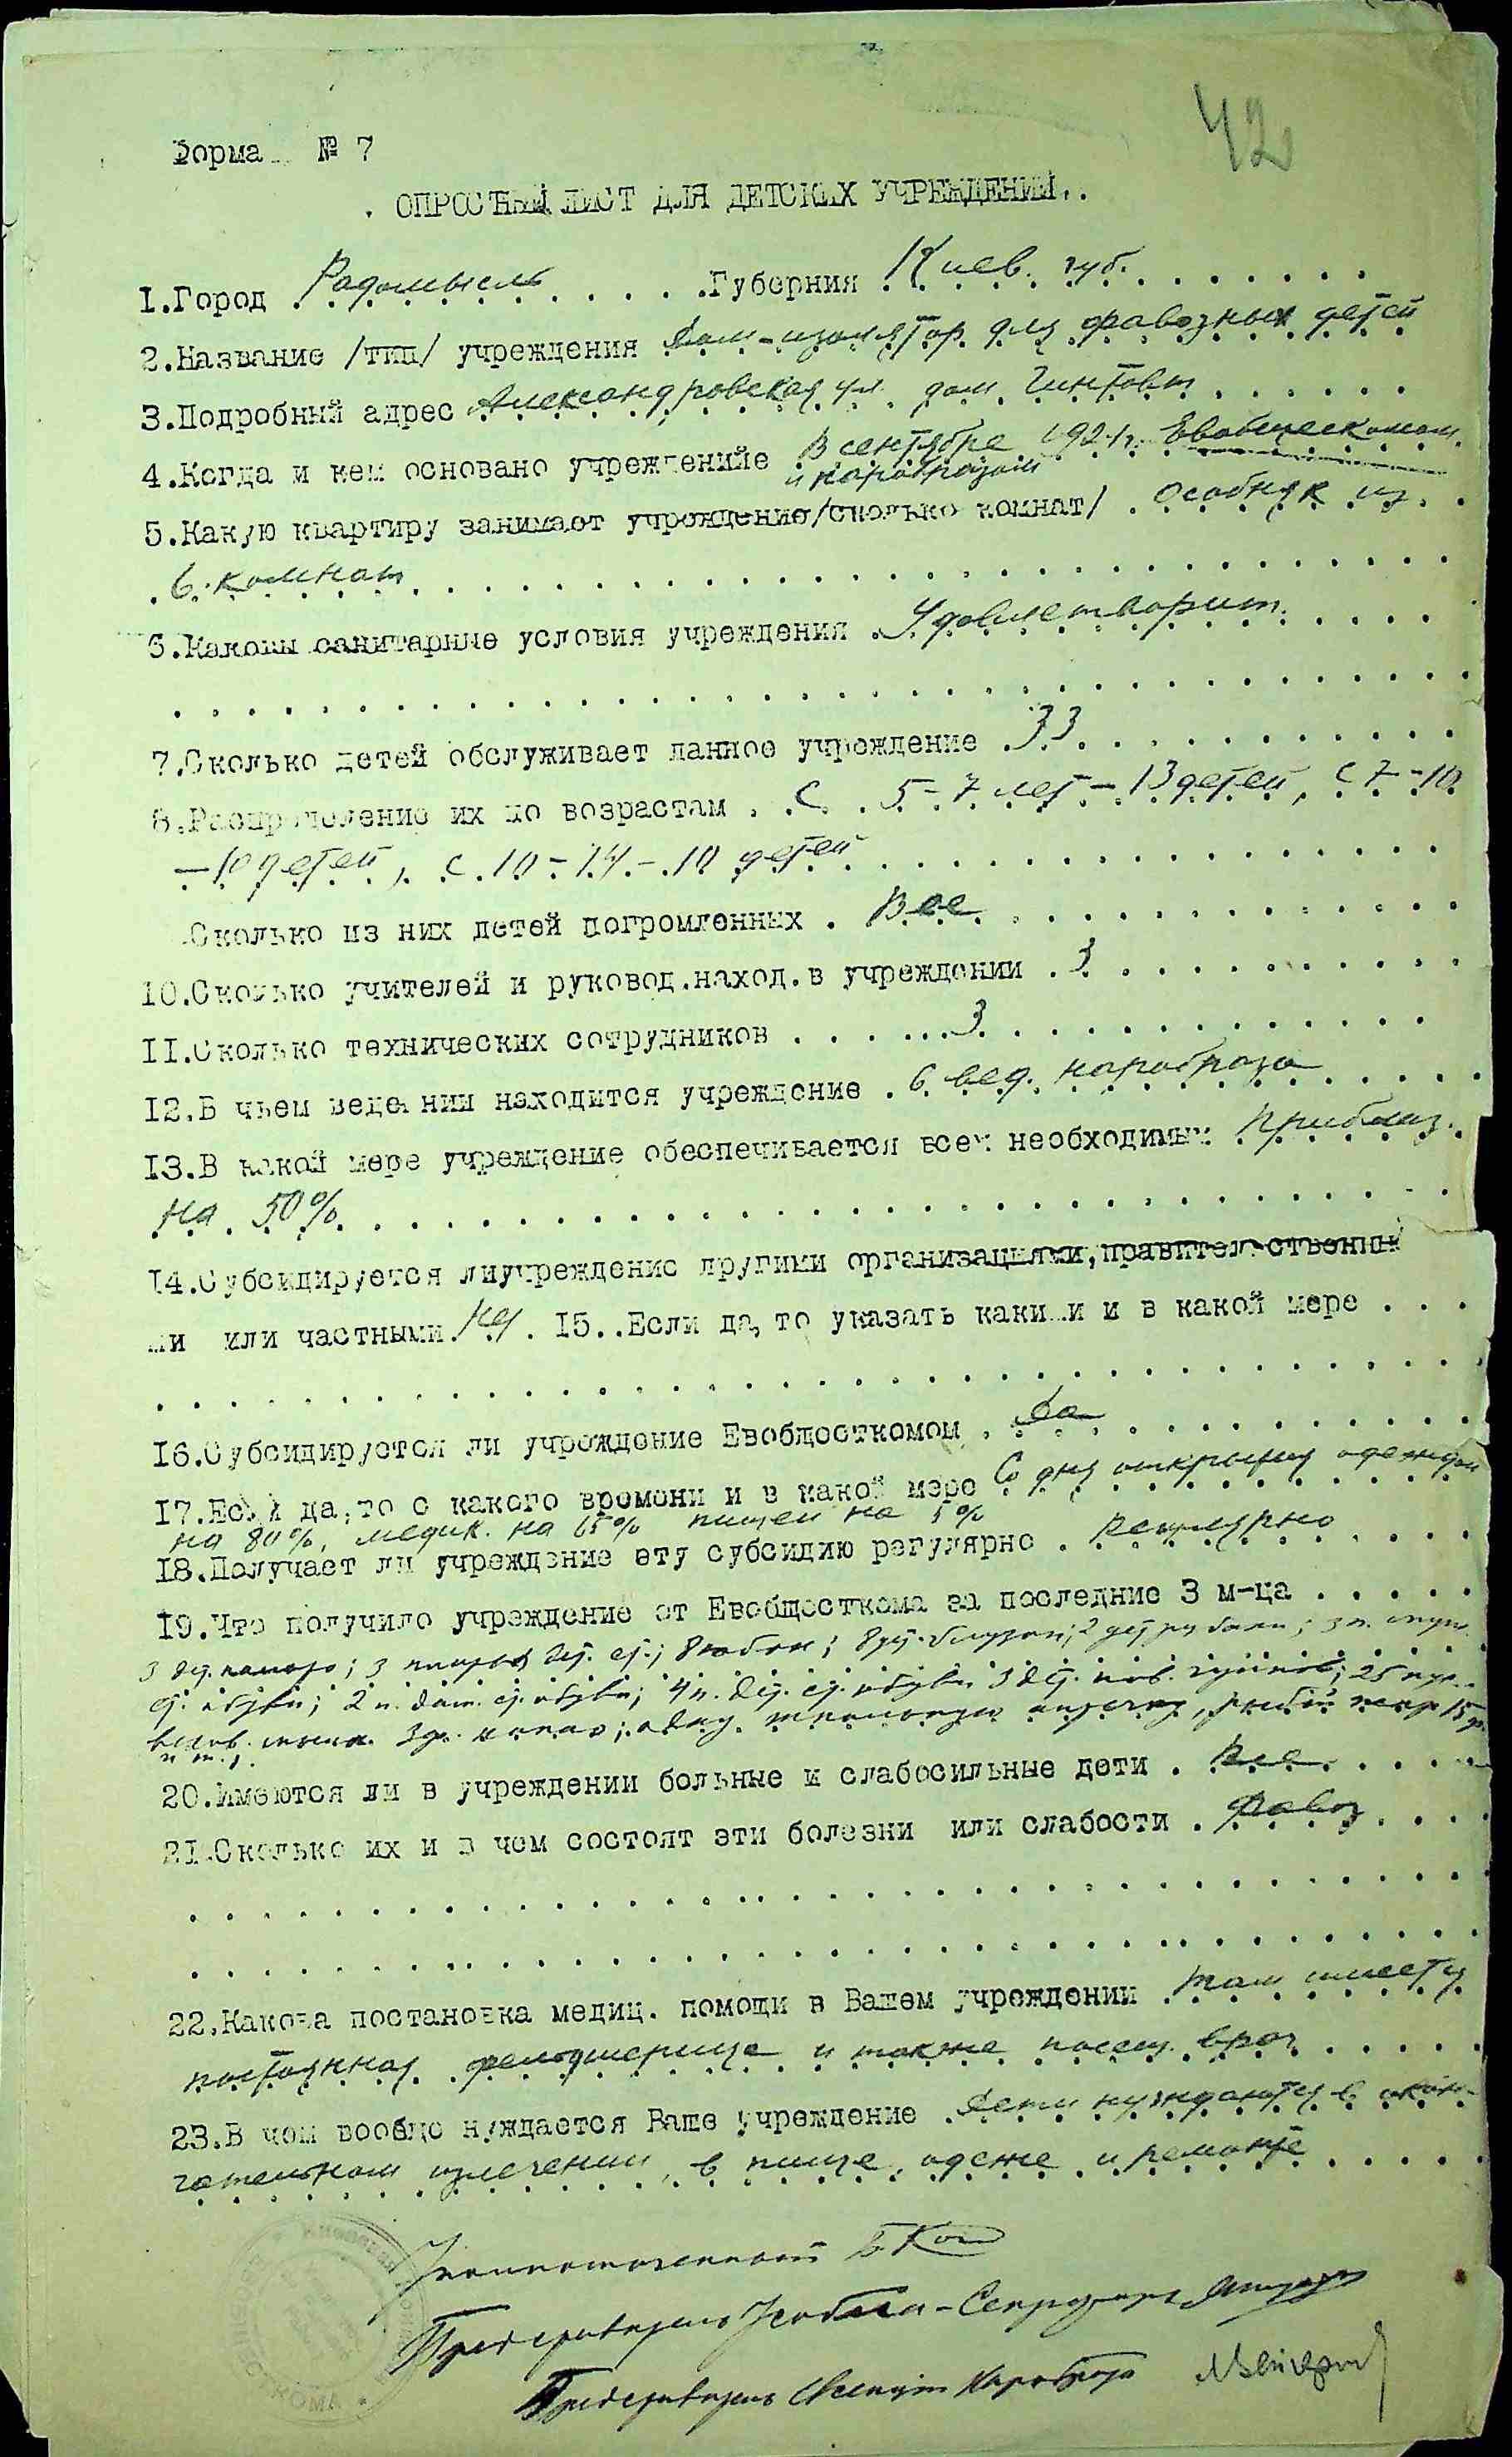 42
Форма № 7
ОПРОСНЫЙ ЛИСТ ДЛЯ ДЕТСКИХ УЧРЕЖДЕНИЙ.
1.Город Радомысль Губерния Киев. губ.
2.Название /тип/ учреждения Дом-изолятор для фавозных детей
3.Подробный адрес Александровская ул. дом Гинтовт
4.Когда и кем основано учреждениие В сентябре 1921г. Евобщесткомом
и наробразом
5.Какую квартиру занимает учреждение/сколько комнат/ Особняк из
6 комнат
6.Каковы санитарные условия учреждения Удовлетворит.
7.Сколько детей обслуживает данное учреждение 33
8.Распределение их по возрастам С 5-7 лет - 13 детей, с 7-10
- 10 детей, с 10-14 - 10 детей
Сколько из них детей погромленных Все
10.Сколько учителей и руковод.наход.в учреждении 3
11.Сколько технических сотрудников 3
12.В чьем ведении находится учреждение в вед. наробраза
13.В какой мере учреждение обеспечивается всем необходимым Приблиз.
на 50%
14.Субсидируется лиучреждение другими организациями,правительственны
ми или частными Нет. 15..Если да, то указать какими и в какой мере
16.Субсидируется ли учреждение Евобщесткомом Да
17.Если да,то с какого времени и в какой мере Со дня открытия одеждой
на 80%, медик. на 65% пищей на 5%
18.Получает ли учреждение эту субсидию регулярно Регулярно
19.Что получило учреждение от Евобщесткома за последние 3 м-ца
3 дет. пальто; 3 дет. 8 юбок; 8 дет. блузок; 2 дет рубахи; 3 п.
обуви; 2 п. дам. обуви; 4 п. дет. обуви 3 дет. 25
3 ф. какао; одну аптечку, рыбий жир 15 ф.
и т.
20.Имеются ли в учреждении больные и слабосильные дети Все
21.Сколько их и в чем состоят эти болезни или слабости Фавоз
22.Какова постановка медиц. помощи в Вашем учреждении Там имеется
постоянная фельдшерица и также посещ. врач
23.В чем вообще нуждается Ваше учреждение Дети нуждаются в окон-
чательном излечении, в пище, одеже и ремонте
Уполномоченный
Председатель - Секретарь
Председатель Наробраза